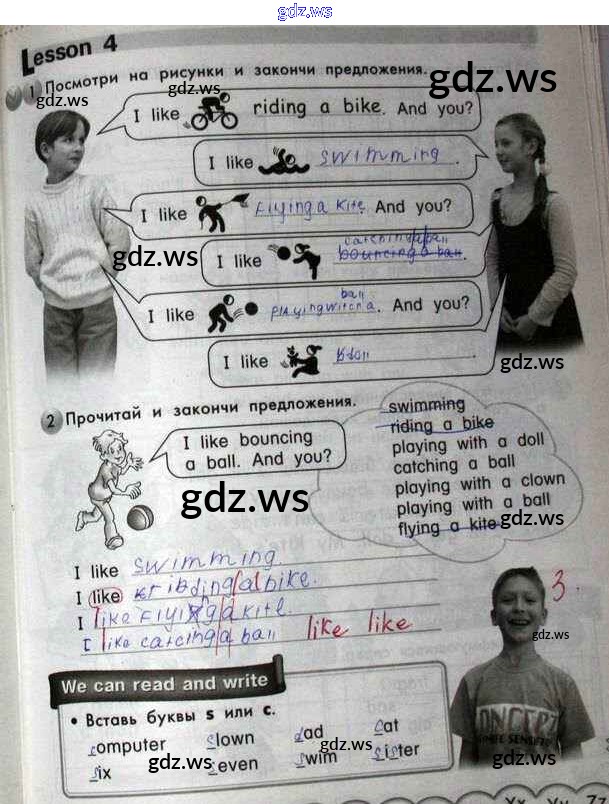 gdz.ws
Lesson 4
1 Посмотри на рисунки и закончи предложения.
gdz.ws
gdz.ws
gdz.ws
I like riding a bike. And you?
I like swimming.
I like Flying a kite And you?
gdz.ws
catching a ball
I like bouncing a ball.
ball
I like playing with a. And you?
I like
gdz.ws
2 Прочитай и закончи предложения.
I like bouncing
a ball. And you?
swimming
riding a bike
playing with a doll
catching a ball
playing with a clown
playing with a ball
flying a kite
gdz.ws
gdz.ws
I like swimming.
I like a bike.
I like Flying a kite.
I like catcing a ball like like
3.
We can read and write
• Вставь буквы s или c.
computer slown dad cat
six seven swim sister
gdz.ws
gdz.ws
gdz.ws
gdz.ws
CONCEPT
Xx Yy Zz